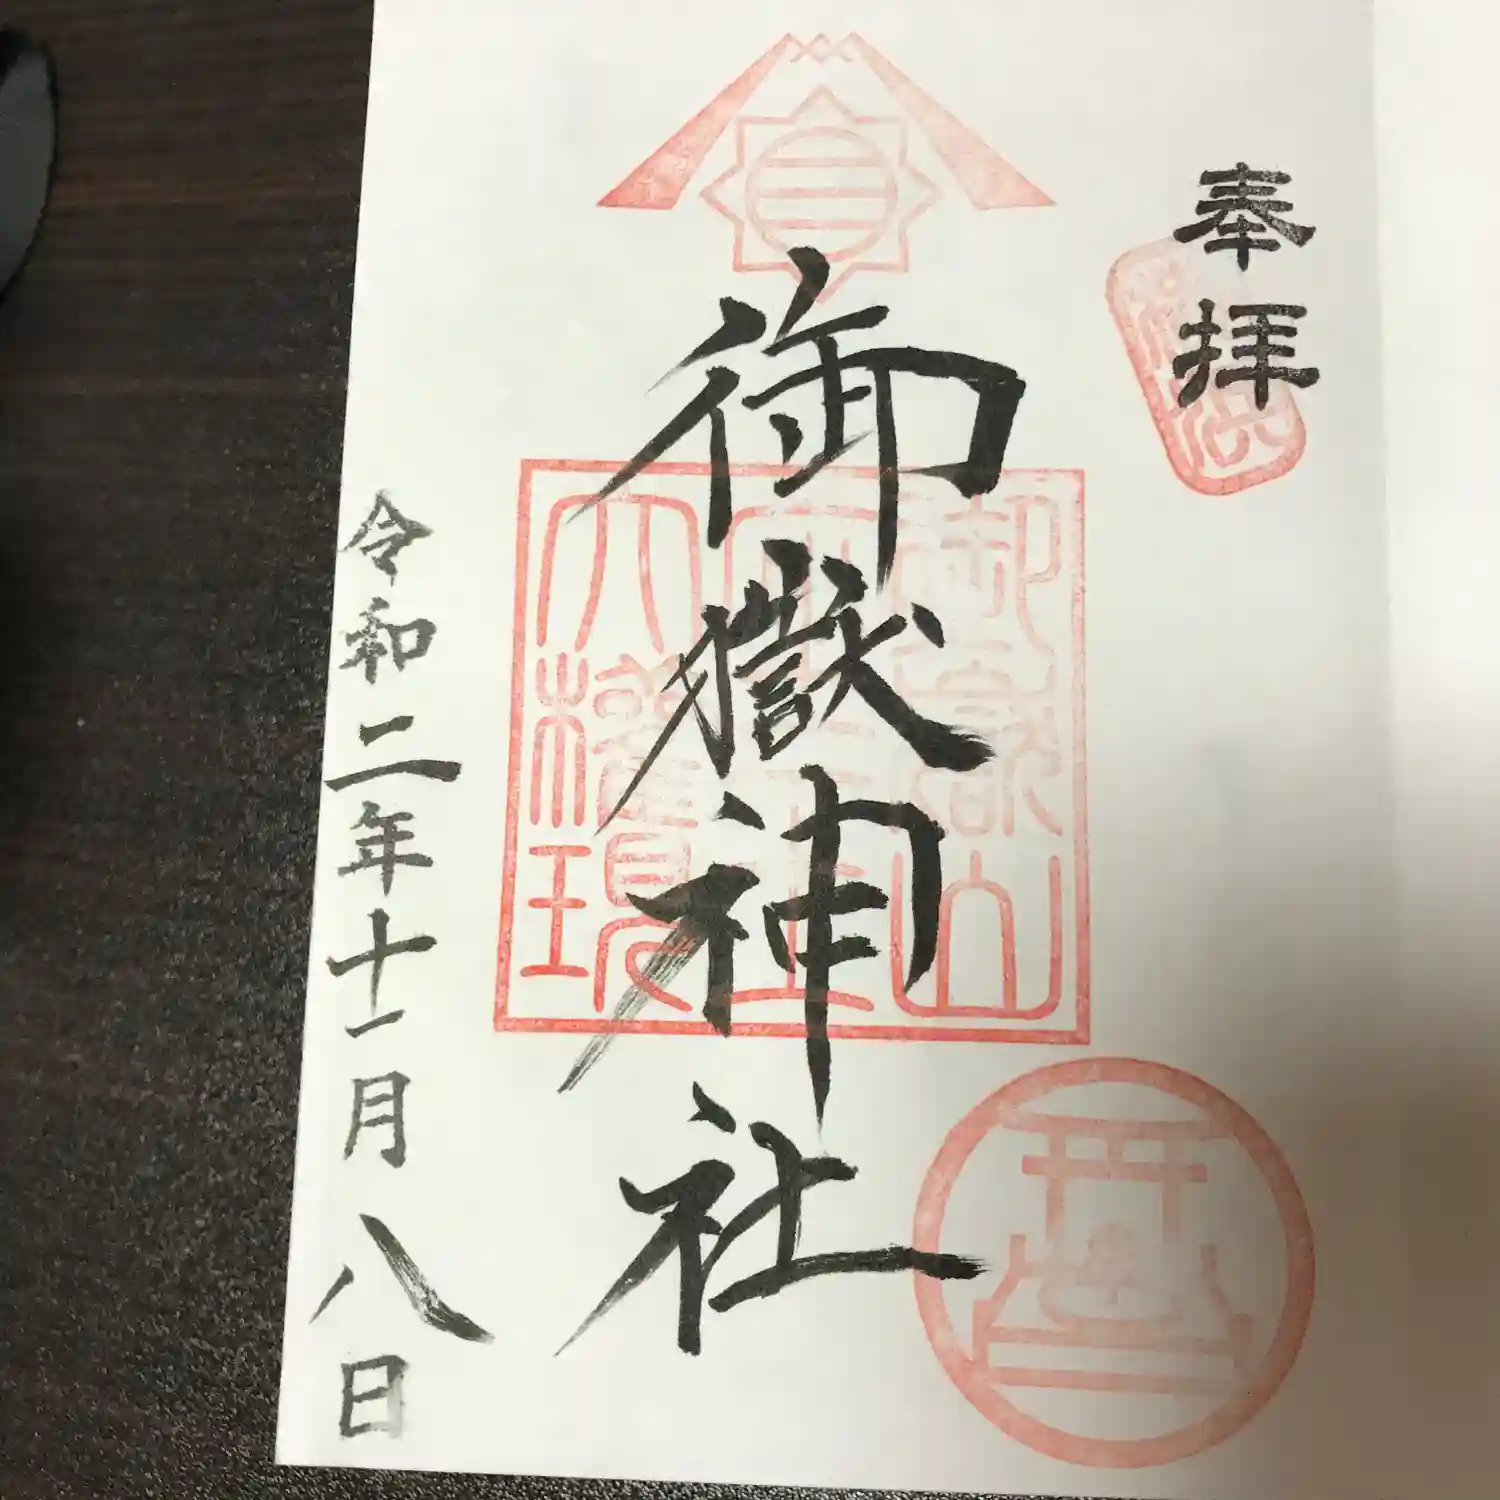 奉拝
御嶽神社
御嶽山
大権現
令和二年十一月八日